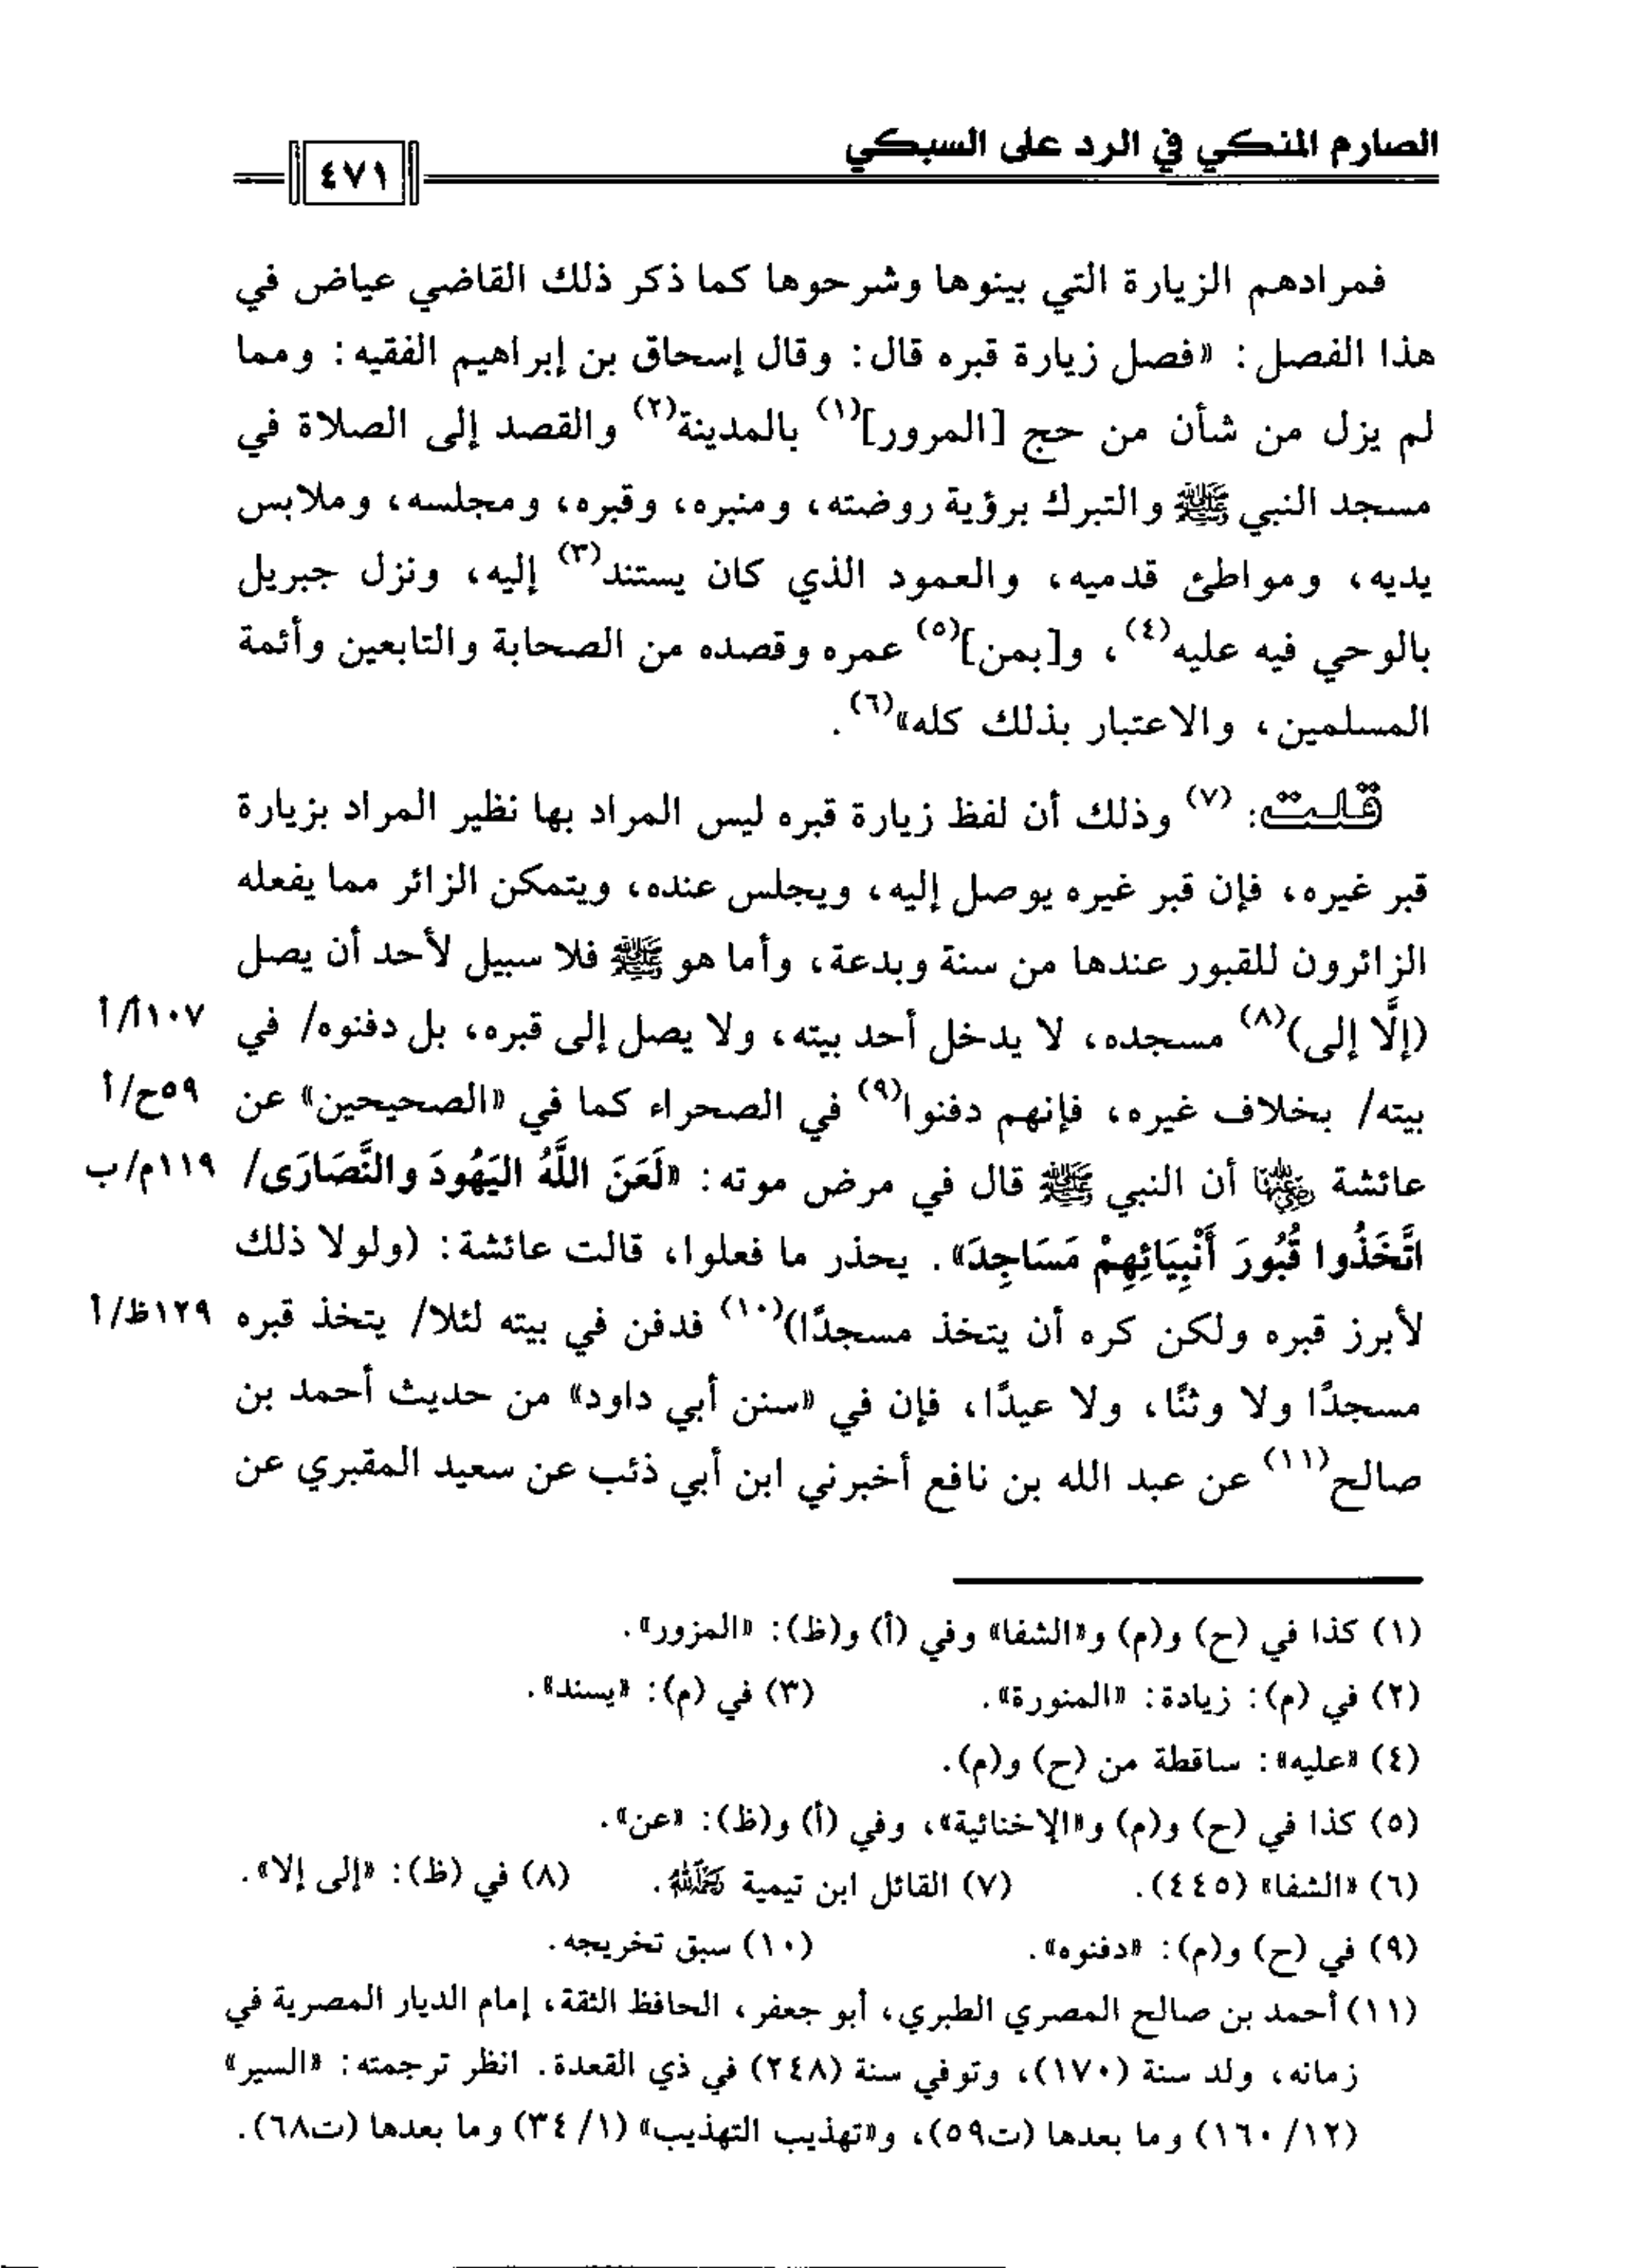 الصارم المنكي في الرد على السبكي
٤٧١
فمرادهم الزيارة التي بينوها وشرحوها كما ذكر ذلك القاضي عياض في
هذا الفصل: «فصل زيارة قبره قال: وقال إسحاق بن إبراهيم الفقيه: ومما
لم يزل من شأن من حج [المرور](١) بالمدينة(٢) والقصد إلى الصلاة في
مسجد النبي ﷺ والتبرك برؤية روضته، ومنبره، وقبره، ومجلسه، وملابس
يديه، ومواطئ قدميه، والعمود الذي كان يستند(٣) إليه، ونزل جبريل
بالوحي فيه عليه(٤)، و[بمن](٥) عمره وقصده من الصحابة والتابعين وأئمة
المسلمين، والاعتبار بذلك كله»(٦).
قلت: (٧) وذلك أن لفظ زيارة قبره ليس المراد بها نظير المراد بزيارة
قبر غيره، فإن قبر غيره يوصل إليه، ويجلس عنده، ويتمكن الزائر مما يفعله
الزائرون للقبور عندها من سنة وبدعة، وأما هو ﷺ فلا سبيل لأحد أن يصل
(إلَّا إلى)(٨) مسجده، لا يدخل أحد بيته، ولا يصل إلى قبره، بل دفنوه/ في ١٠٧أ/أ
بيته/ بخلاف غيره، فإنهم دفنوا(٩) في الصحراء كما في «الصحيحين» عن ٥٩ح/أ
عائشة رضي الله عنها أن النبي ﷺ قال في مرض موته: «لَعَنَ اللَّهُ اليَهُودَ والنَّصَارَى/ ١١٩م/ب
اتَّخَذُوا قُبُورَ أَنْبِيَائِهِمْ مَسَاجِدَ». يحذر ما فعلوا، قالت عائشة: (ولولا ذلك
لأبرز قبره ولكن كره أن يتخذ مسجدًا)(١٠) فدفن في بيته لئلا/ يتخذ قبره ١٢٩ظ/أ
مسجدًا ولا وثنًا، ولا عيدًا، فإن في «سنن أبي داود» من حديث أحمد بن
صالح(١١) عن عبد الله بن نافع أخبرني ابن أبي ذئب عن سعيد المقبري عن
(١) كذا في (ح) و(م) و«الشفا» وفي (أ) و(ظ): «المزور».
(٢) في (م): زيادة: «المنورة». (٣) في (م): «يسند».
(٤) «عليه»: ساقطة من (ح) و(م).
(٥) كذا في (ح) و(م) و«الإخنائية»، وفي (أ) و(ظ): «عن».
(٦) «الشفا» (٤٤٥). (٧) القائل ابن تيمية رحمه الله. (٨) في (ظ): «إلى إلا».
(٩) في (ح) و(م): «دفنوه». (١٠) سبق تخريجه.
(١١) أحمد بن صالح المصري الطبري، أبو جعفر، الحافظ الثقة، إمام الديار المصرية في
زمانه، ولد سنة (١٧٠)، وتوفي سنة (٢٤٨) في ذي القعدة. انظر ترجمته: «السير»
(١٦٠/١٢) وما بعدها (ت٥٩)، و«تهذيب التهذيب» (٣٤/١) وما بعدها (ت٦٨).